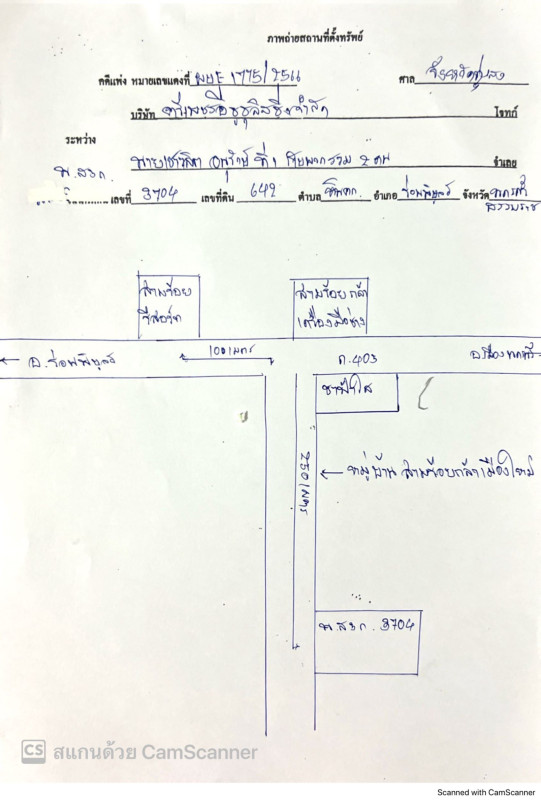 ภาพถ่ายสถานที่ตั้งทรัพย์
คดีแพ่ง หมายเลขแดงที่ ผบE 1775/2566 ศาล จังหวัดทุ่งสง
บริษัท จำกัด โจทก์
ระหว่าง
นาย ที่ 1 กับพวกรวม 2 คน จำเลย
น.ส.3ก.
เลขที่ 3704 เลขที่ดิน 642 ตำบล หินตก อำเภอ ร่อนพิบูลย์ จังหวัด นครศรี
ธรรมราช
สามร้อย
รีสอร์ท
สามร้อยกล้า
เครื่องมือช่าง
← อ.ร่อนพิบูลย์
100 เมตร
ถ.403
อ.เมืองนครศรี
ชาป้าใส
250 เมตร
← หมู่บ้าน สามร้อยกล้าเมืองใหม่
น.ส.3ก. 3704
CS สแกนด้วย CamScanner
Scanned with CamScanner